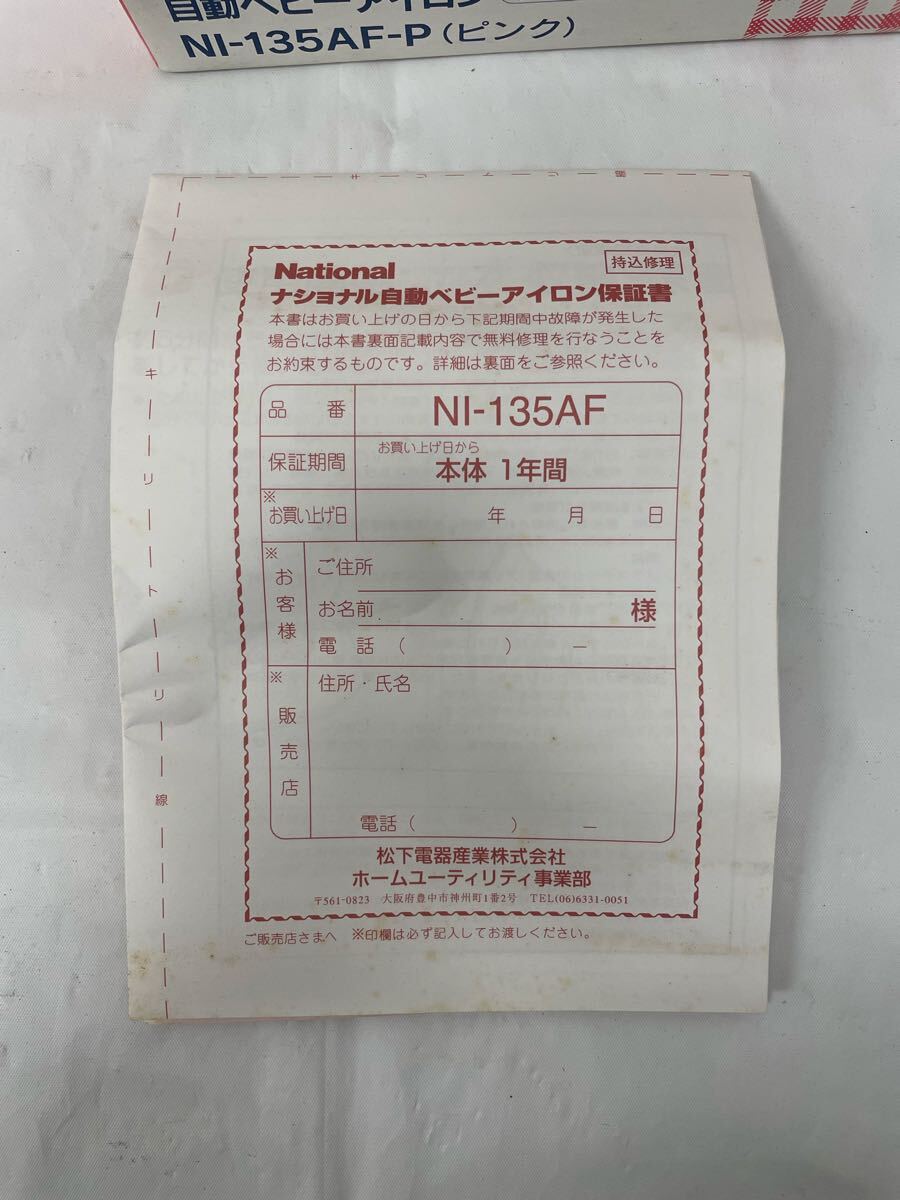 自動ベビーアイロン
NI-135AF-P(ピンク)
キリトリ線
キリトリ線
National
持込修理
ナショナル自動ベビーアイロン保証書
本書はお買い上げの日から下記期間中故障が発生した
場合には本書裏面記載内容で無料修理を行なうことを
お約束するものです。詳細は裏面をご参照ください。
品 番 NI-135AF
保証期間 お買い上げ日から
本体 1年間
※お買い上げ日 年 月 日
※お客様
ご住所
お名前 様
電 話 ( ) −
※販売店
住所・氏名
電話 ( ) −
松下電器産業株式会社
ホームユーティリティ事業部
〒561-0823 大阪府豊中市神州町1番2号 TEL(06)6331-0051
ご販売店さまへ ※印欄は必ず記入してお渡しください。